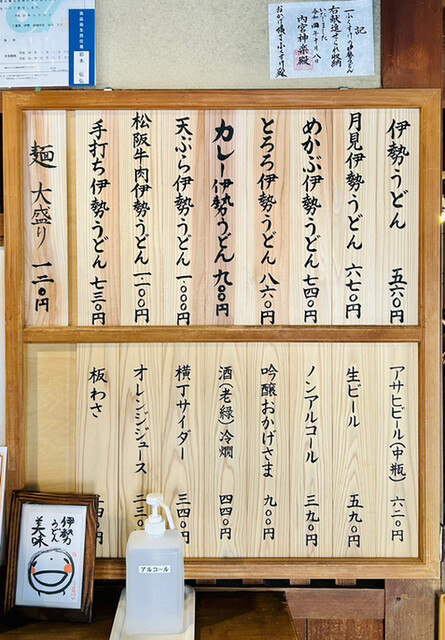 記
一、ふくすけの伊勢うどん
右献進せられ収納
いたしました
令和四年十月八日
内宮神楽殿
おかげ横丁ふくすけ殿
伊勢うどん 五六〇円
月見伊勢うどん 六七〇円
めかぶ伊勢うどん 七四〇円
とろろ伊勢うどん 八六〇円
カレー伊勢うどん 九〇〇円
天ぷら伊勢うどん 一、〇〇〇円
松阪牛肉伊勢うどん 一、一〇〇円
手打ち伊勢うどん 七三〇円
麺 大盛り 一二〇円
アサヒビール(中瓶) 六二〇円
生ビール 五九〇円
ノンアルコール 三九〇円
吟醸おかげさま 九〇〇円
酒(老緑)冷燗 四四〇円
横丁サイダー 三四〇円
オレンジジュース 二三〇
板わさ
伊勢
うどん
美味
アルコール